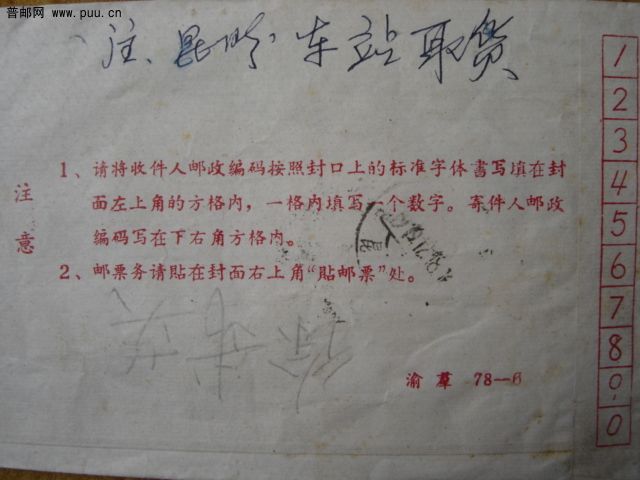 普邮网
www.puu.cn
注、昆明车站取货
注意
1、请将收件人邮政编码按照封口上的标准字体書写填在封
面左上角的方格内，一格内填写一个数字。寄件人邮政
编码写在下右角方格内。
2、邮票务请贴在封面右上角“贴邮票”处。
渝羣 78—6
1
2
3
4
5
6
7
8
9
0